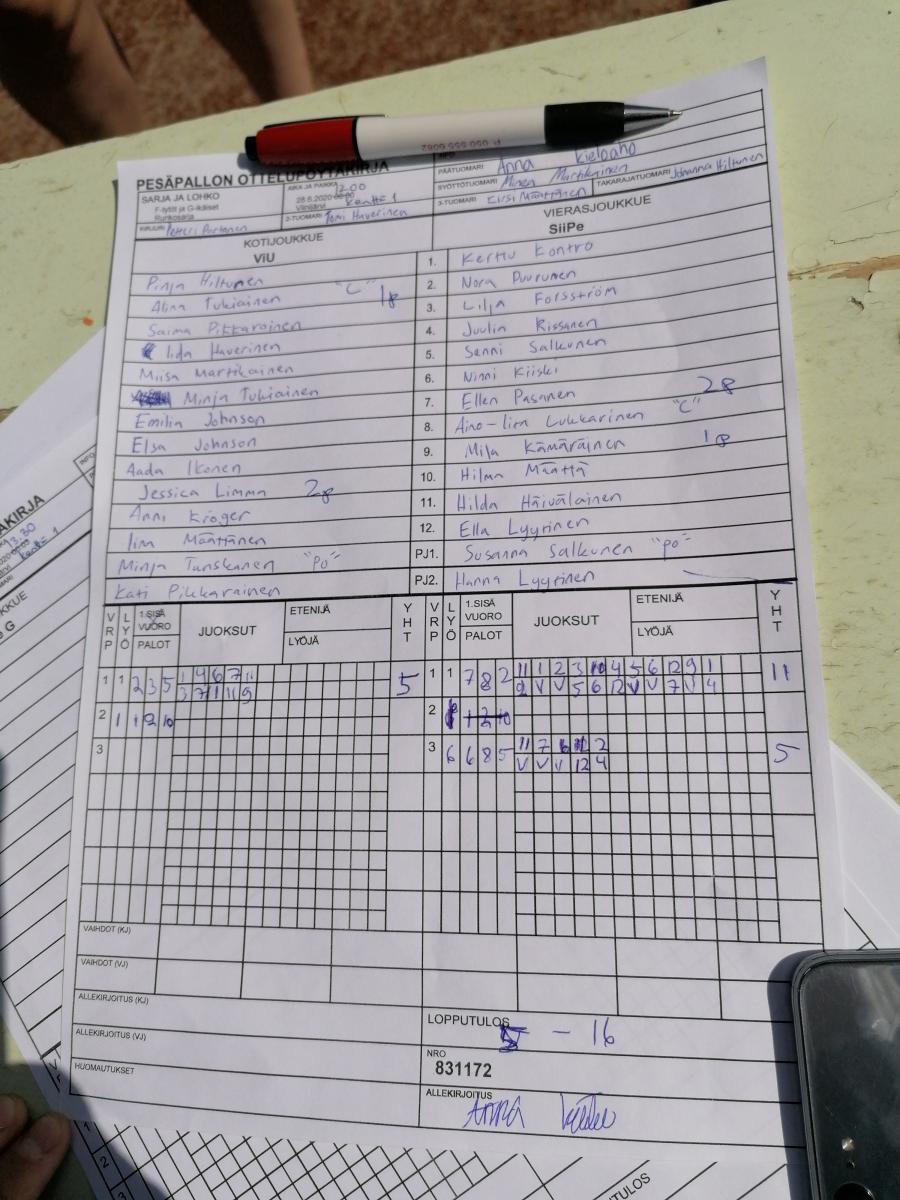 PESÄPALLON OTTELUPÖYTÄKIRJA
PÄÄTUOMARI Anna Kieloaho
SARJA JA LOHKO
F-tytöt ja G-ikäiset
Runkosarja
AIKA JA PAIKKA 12.00
28.6.2020
Viinijärvi Kenttä 1
SYÖTTÖTUOMARI Minea Martikainen
2-TUOMARI Tomi Haverinen
3-TUOMARI Kirsi Määttänen
TAKARAJATUOMARI Johanna Hiltunen
KIRJURI Petteri Partanen
KOTIJOUKKUE
ViU
VIERASJOUKKUE
SiiPe
Pinja Hiltunen 1. Kerttu Kontro
Alina Tukiainen "C" 1p 2. Nora Puurunen
Saima Pikkarainen 3. Lilja Forsström
Iida Haverinen 4. Juulia Rissanen
Miisa Martikainen 5. Senni Salkunen
Minja Tukiainen 6. Ninni Kiiski
Emilia Johnson 7. Ellen Pasanen
Elsa Johnson 8. Aino-Iina Lukkarinen "C"
Aada Ikonen 9. Mila Kämäräinen
Jessica Limma 10. Hilma Määttä
Anni Kröger 11. Hilda Häiväläinen
Iina Määttänen 12. Ella Lyytinen
Minja Tanskanen "PO" PJ1. Susanna Salkunen "PO"
Kati Pikkarainen PJ2. Hanna Lyytinen
VRP LYÖ 1.SISÄ VUORO PALOT JUOKSUT ETENIJÄ LYÖJÄ YHT VRP LYÖ 1.SISÄ VUORO PALOT JUOKSUT ETENIJÄ LYÖJÄ YHT
1 1 2 3 5 1 4 6 7 11 5 1 1 7 8 2 11 1 2 3 10 4 5 6 12 9 1 11
3 7 1 11 9 2 V V 5 6 12 V V 7 V 4
2 2
3 3 6 6 8 5 5
V V V 12 4
VAIHDOT (KJ)
VAIHDOT (VJ)
ALLEKIRJOITUS (KJ)
ALLEKIRJOITUS (VJ)
HUOMAUTUKSET
LOPPUTULOS
5 - 16
NRO
831172
ALLEKIRJOITUS
Anna